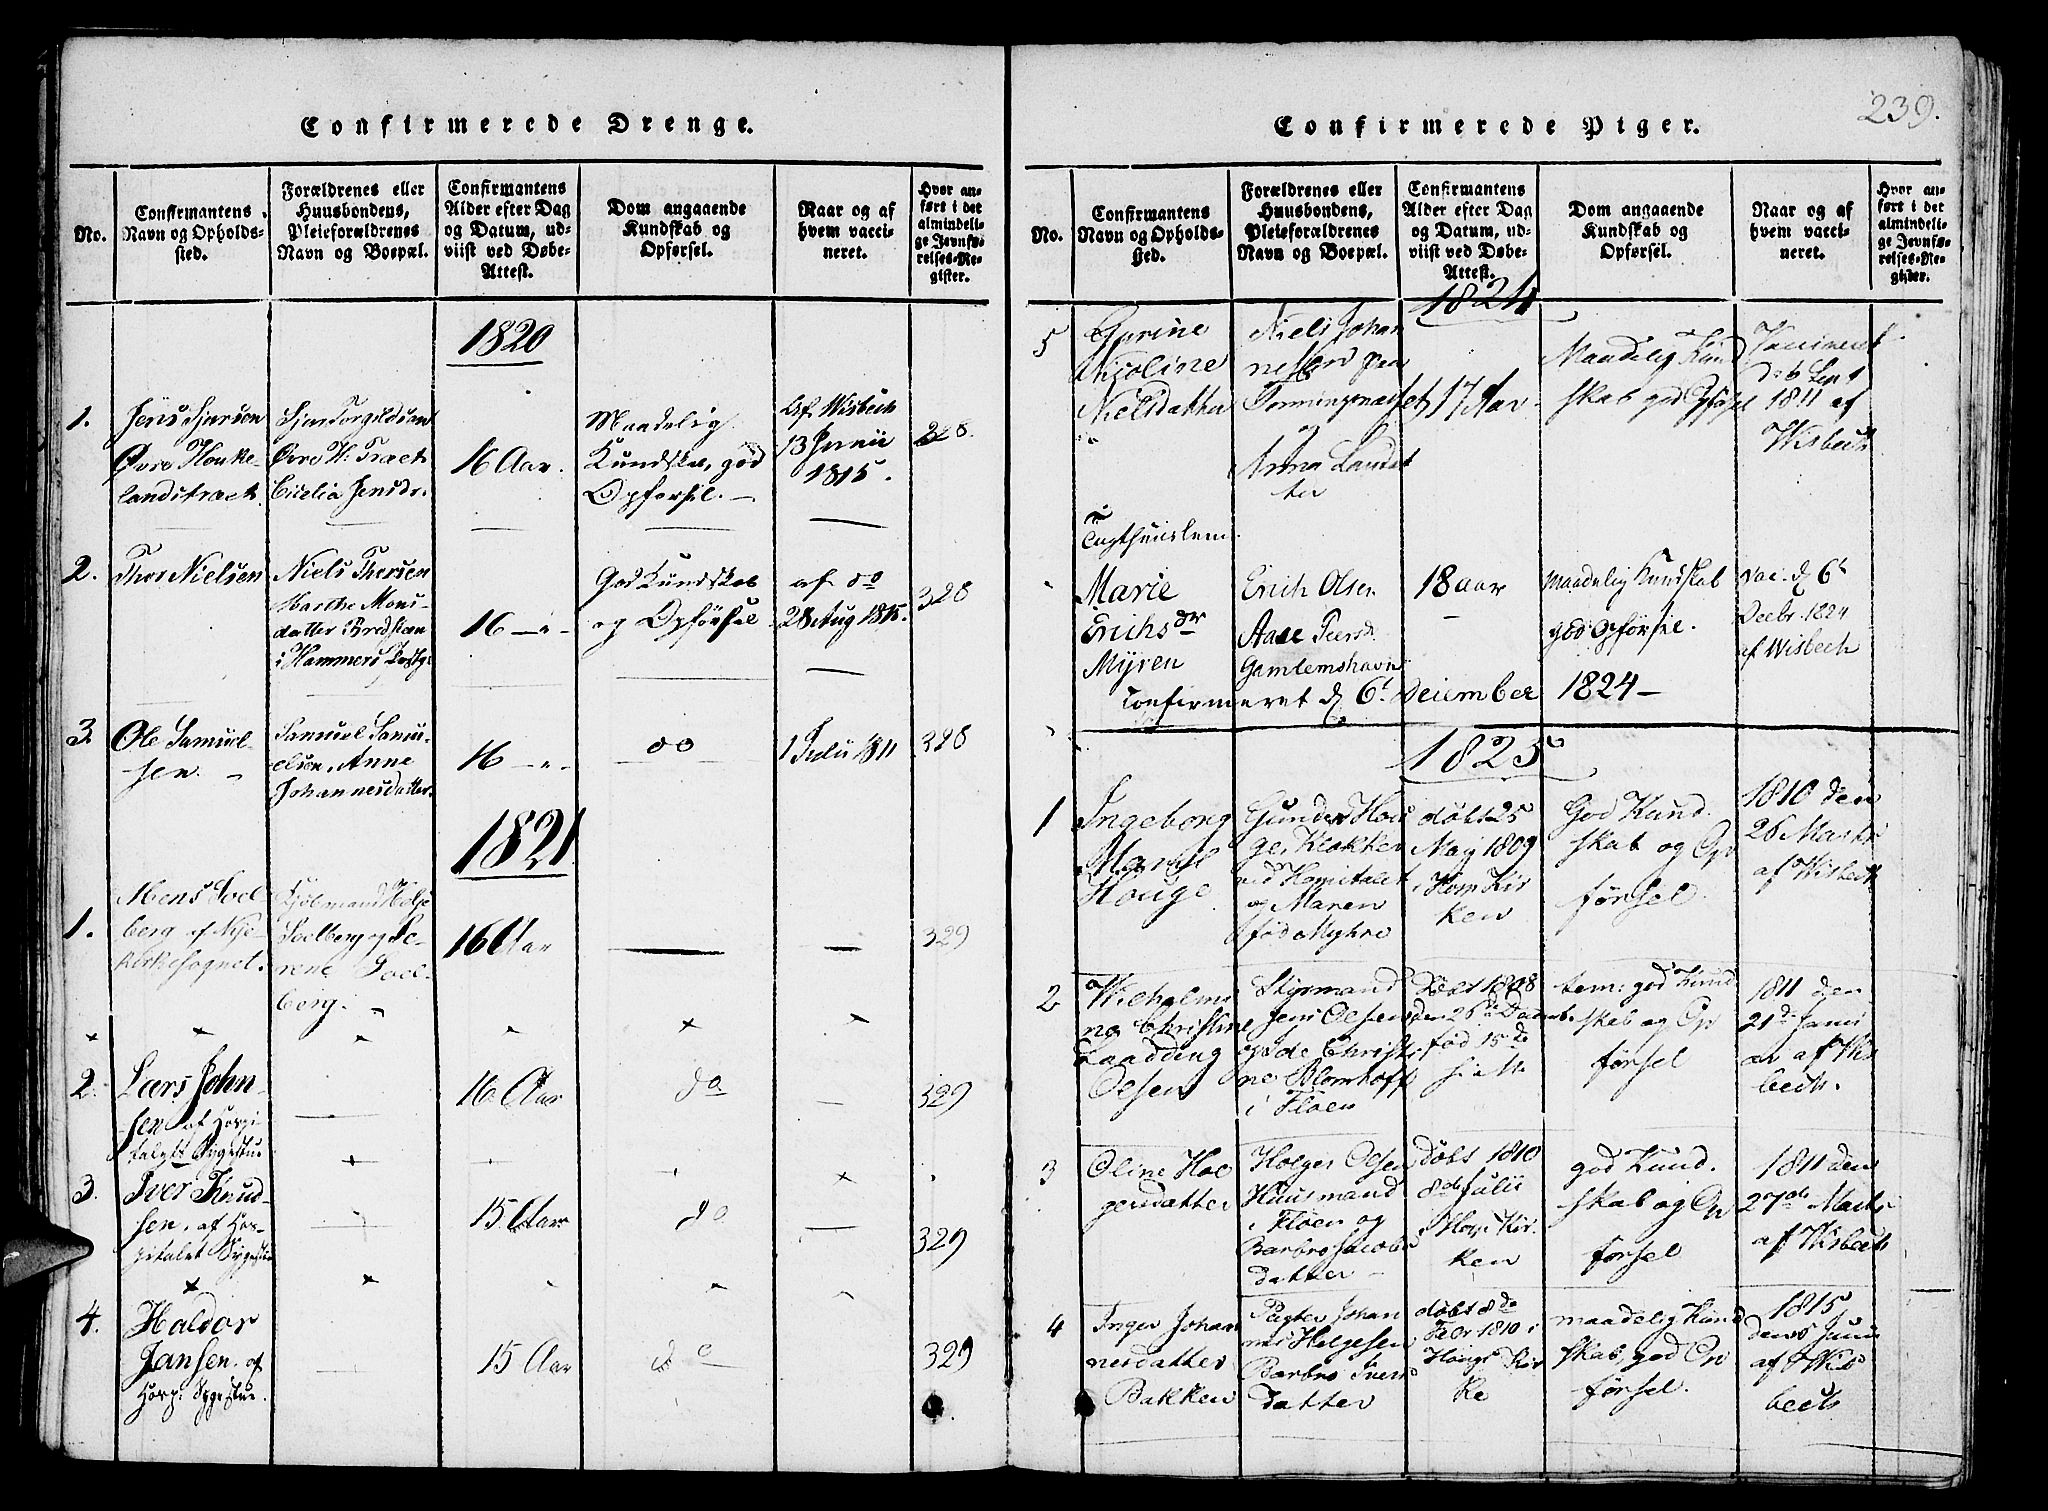 Confirmerede Drenge.
No.
Confirmantens
Navn og Opholds-
sted.
Forældrenes eller
Huusbondens,
Pleieforældrenes
Navn og Boepæl.
Confirmantens
Alder efter Dag
og Datum, ud-
viist ved Døbe-
Attest.
Dom angaaende
Kundskab og
Opførsel.
Naar og af
hvem vacci-
neret.
Hvor an-
ført i det
almindeli-
ge Jevnfø-
relses-Re-
gister.
1820
1.
Jens
Øvre
landstræet
Øvre H: Træet
Cicelia Jensdr.
16 Aar.
Maadelig
Kundskb, god
Opførsel. —
Af Wisbech
13 Junii
1815.
328.
2.
Thor Nielsen
Niels Thorsen
Marthe Mons-
datter Bredsteen
i Hammers
16 — "—
God Kundskab
og Opførsel
af do
28 Aug 1815.
328
3.
Ole Samuel-
sen.
Samuel Samu-
elsen, Anne
Johannesdatter.
16 — "—
do
1 Julii 1811
328
1821
1.
Mons Soel
berg af Nye-
kirkesognet.
Soelberg og Se-
rene Soel-
berg.
16 Aar
—
—
329
2.
Lars John
sen af Hospi
talets Sygestue
—
16 Aar
do
—
329
3.
Iver Knud-
sen, af Hos-
pitalet Sygestue
—
15 Aar
do
—
329
4.
Haldor
Jansen. af
Hosp: Sygestue.
—
15 Aar
do
329
239.
Confirmerede Piger.
No.
Confirmantens
Navn og Opholds-
sted.
Forældrenes eller
Huusbondens,
Pleieforældrenes
Navn og Boepæl.
Confirmantens
Alder efter Dag
og Datum, ud-
viist ved Døbe-
Attest.
Dom angaaende
Kundskab og
Opførsel.
Naar og af
hvem vacci-
neret.
Hvor an-
ført i det
almindeli-
ge Jevnfø-
relses-Re-
gister.
1824
5
Gurine
Nicoline
Nielsdatter
Niels Johan
nesen paa
og
Anna Larsdat
ter
17 Aar
Maadelig Kund
skab god Opførsel
Vaccineret
d. 6 Sept
1811 af
Wisbech
Tugthuuslem.
Marie
Erichs dr
Myren
Erich Olsen
Aase Peersd.
Gamlemshavn
18 aar
—
Maadelig Kundskab
god Opførsel.
Vac. d 6t
Decbr. 1824
af Wisbech
Confirmeret d 6t December 1824 —
1825
1
Ingeborg
Marie
Houge
Gunder Hou
ge, Klokker
ved Hospitalet
og Maren
fød Myhre
døbt 25
May 1809
i Kors Kir
ken
God Kund.
skab og Op
førsel
1810 den
26 Marts
af Wisbech
2
Wilhelmi
ne Christine
Laadding
Olsen
Styrmand
Jens Olsen
og de Christi
ne Blomhoff
i Floen
Døbt 1808
den 26de Decemb.
fød 15de
tem: god Kund
skab og Op
førsel
1811 den
21d Janu
ar af Wis
bech.
3
Oline Hol
gersdatter
Holger Olsen
Huusmand
i Floen og
Barbro Jacobs
datter —
Døbt 1810
8de Julii
i Kors Kir
ken
god Kund.
skab og Op
førsel
1811 den
27de Marts
af Wisbech
4
Inger Johan
nesdatter
Bakken
Pagter Johan
nes Helgesen
Barbro Ivers
datter
døbt 8de
Febr 1810 i
Kir
ke
maadelig Kund
skab, god Op
førsel.
1815
Juni
af Wis
bech